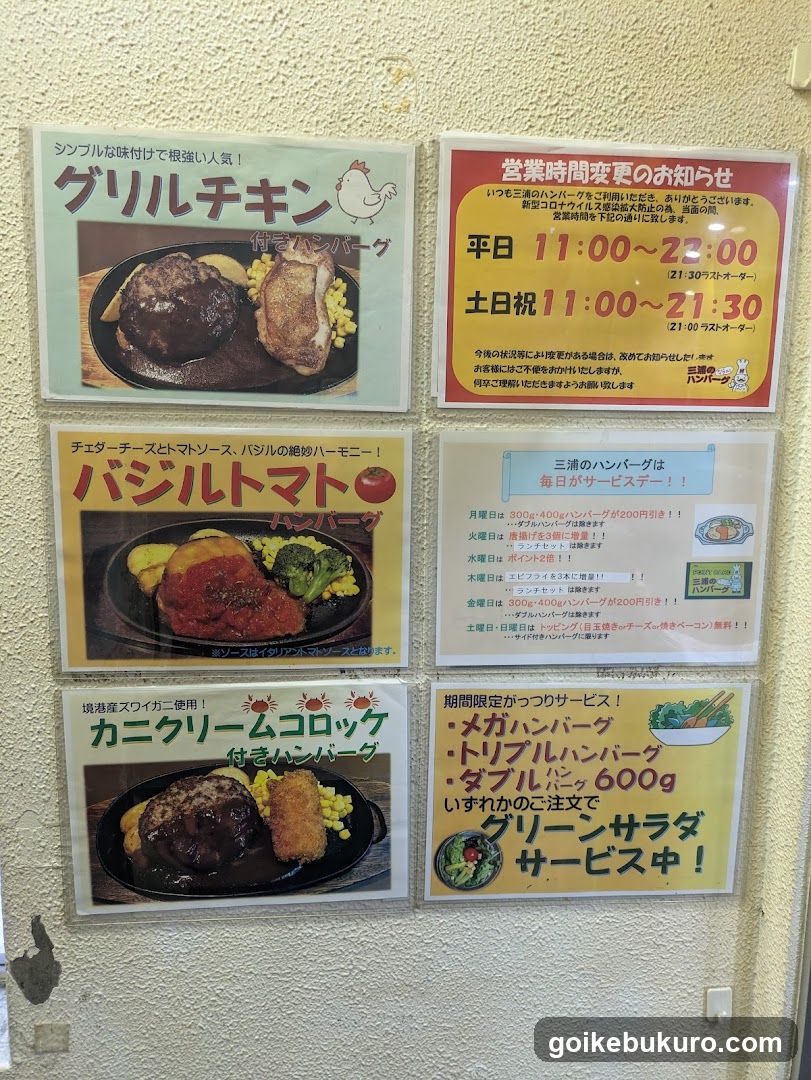 シンプルな味付けで根強い人気！
グリルチキン
付きハンバーグ
営業時間変更のお知らせ
いつも三浦のハンバーグをご利用いただき、ありがとうございます。
新型コロナウイルス感染拡大防止の為、当面の間、
営業時間を下記の通りに致します。
平日 11:00～22:00
(21:30ラストオーダー)
土日祝 11:00～21:30
(21:00ラストオーダー)
今後の状況等により変更がある場合は、改めてお知らせしたします
お客様にはご不便をおかけいたしますが、
何卒ご理解いただきますようお願い致します
三浦の
ハンバーグ
チェダーチーズとトマトソース、バジルの絶妙ハーモニー！
バジルトマト
ハンバーグ
※ソースはイタリアントマトソースとなります。
三浦のハンバーグは
毎日がサービスデー！！
月曜日は 300g・400gハンバーグが200円引き！！
・・・ダブルハンバーグは除きます
火曜日は 唐揚げを3個に増量！！
・・・ランチセット は除きます
水曜日は ポイント2倍！！
木曜日は エビフライを3本に増量!! ！！
・・・ランチセット は除きます
金曜日は 300g・400gハンバーグが200円引き！！
・・・ダブルハンバーグは除きます
土曜日・日曜日は トッピング(目玉焼きorチーズor焼きベーコン)無料！！
・・・サイド付きハンバーグに限ります
POINT CARD
三浦の
ハンバーグ
境港産ズワイガニ使用！
カニクリームコロッケ
付きハンバーグ
期間限定がっつりサービス！
・メガハンバーグ
・トリプルハンバーグ
・ダブルハンバーグ 600g
いずれかのご注文で
グリーンサラダ
サービス中！
goikebukuro.com